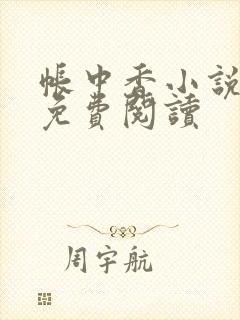 帳中香小說
免費閱讀
周宇航